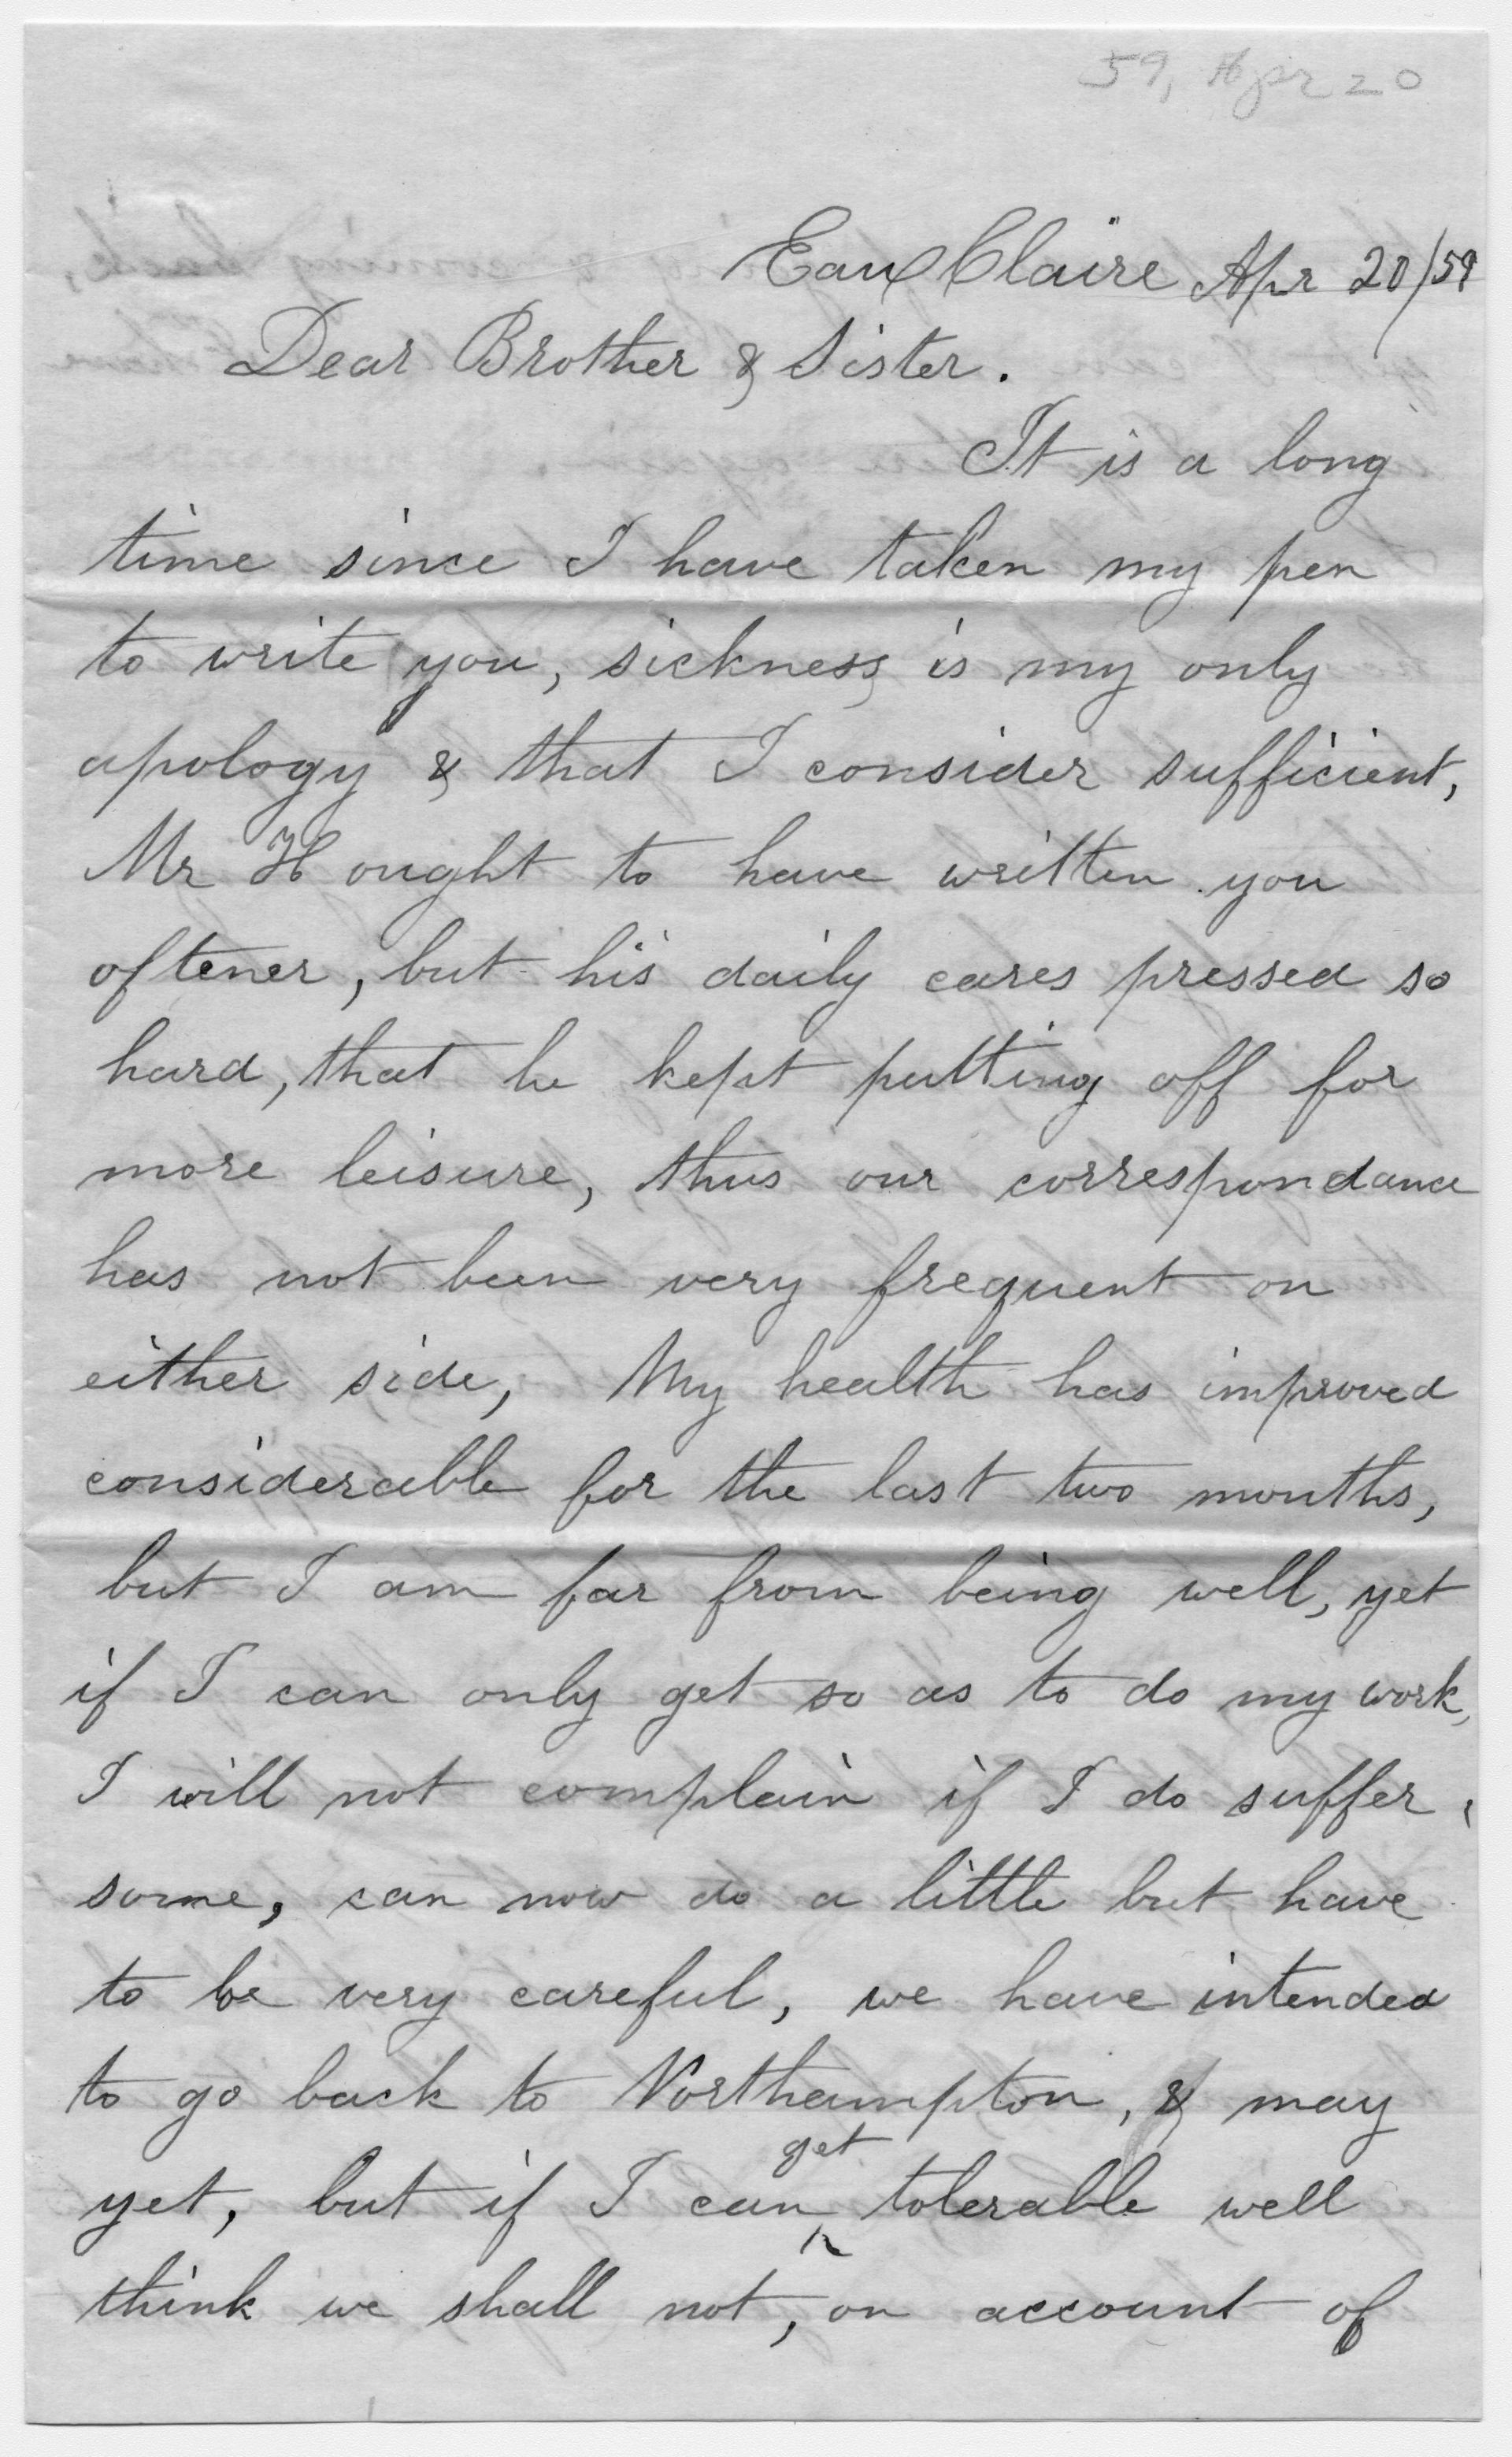 59, Apr 20
Eau Claire Apr 20/59
Dear Brother & Sister.
It is a long
time since I have taken my pen
to write you, sickness is my only
apology & that I consider sufficient,
Mr H ought to have written you
oftener, but his daily cares pressed so
hard, that he kept putting off for
more leisure, thus our correspondance
has not been very frequent on
either side, My health has improved
considerable for the last two months,
but I am far from being well, yet
if I can only get so as to do my work,
I will not complain if I do suffer,
some, can now do a little but have
to be very careful, we have intended
to go back to Northampton, & may
get
yet, but if I can ^ tolerable well
think we shall not, on account of